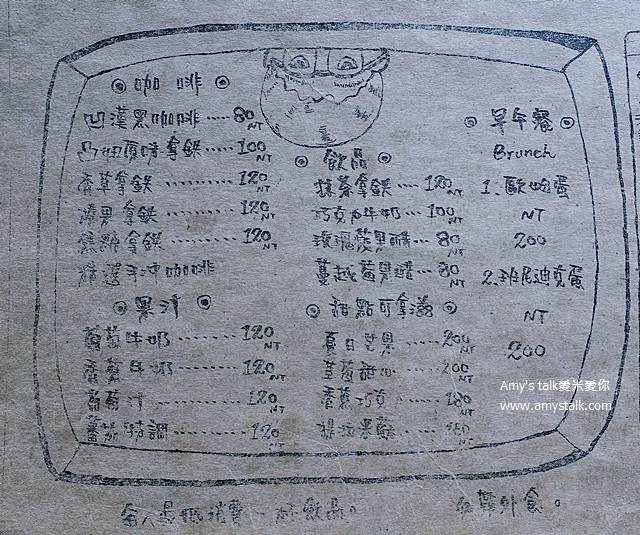 咖啡
凹漢黑咖啡 80 NT
凸妞原味拿鐵 100 NT
香草拿鐵 120 NT
榛果拿鐵 120 NT
焦糖拿鐵 120 NT
精選手沖咖啡
果汁
葡萄牛奶 120 NT
香蕉牛奶 120 NT
葡萄汁 120 NT
蕃茄特調 120 NT
飲品
抹茶拿鐵 120 NT
巧克力牛奶 100 NT
玫瑰蘋果醋 80 NT
蔓越莓果醋 80 NT
甜點可拿滋
夏日芒果 200 NT
甜心 200 NT
香蕉巧克力 180 NT
果酥 NT
早午餐
Brunch
1. 歐姆蛋
NT
200
2. 班尼迪克蛋
NT
200
Amy's talk愛米愛你
www.amystalk.com
每人最低消費一杯飲品。
勿帶外食。